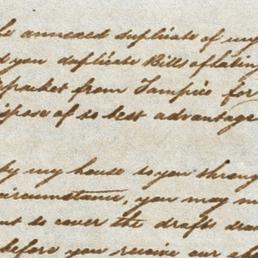 annexed duplicate of my
you duplicate Bills of lading
packet from Tampico for
of to best advantage
my house to you through
circumstance, you may
to cover the drafts
before you receive our